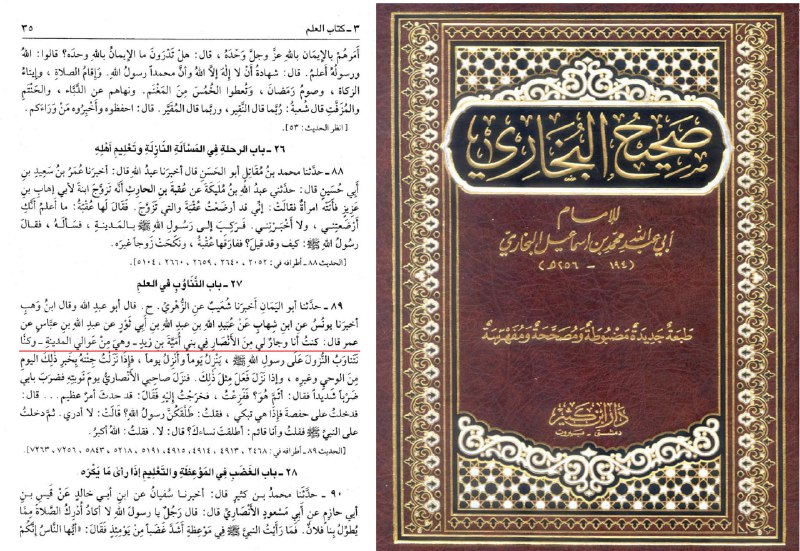 ٣ - كتاب العلم
٣٥
أَمَرَهُمْ بالإِيمَان بالله عزَّ وجلَّ وَحْدَهُ، قال: هلْ تَدْرُونَ ما الإِيمانُ باللهِ وحدَه؟ قالوا: اللهُ
ورسولُهُ أعلمُ. قال: شهادةُ أنْ لا إِلٰهَ إلاَّ اللهُ وأنَّ محمداً رسولُ اللهِ. وإقامُ الصلاةِ، وإيتاءُ
الزكاة، وصومُ رَمَضَانَ، وتُعطوا الخُمُسَ مِنَ المَغْنَمِ. ونهاهم عنِ الدُّبَّاء، والحَنْتَمِ
والمُزَفَّتِ قال شُعبةُ: رُبَّما قال النَّقِير، وربَّما قال المُقَيَّر. قال: احفظوه وأخْبِرُوه مَنْ وَرَاءَكم.
[انظر الحديث: ٥٣].
٢٦ - باب الرحلةِ في المسألةِ النَّازِلَةِ وتَعْلِيمِ أهْلِهِ
٨٨ - حدَّثنا محمد بنُ مُقَاتِلٍ أبو الحَسَنِ قال: أخبرَنا عبدُ اللهِ قال: أخبرَنا عُمَرُ بنُ سَعِيدِ بنِ
أبي حُسَيْنٍ قال: حدَّثني عبدُ اللهِ بنُ مُلَيْكَةَ عن عُقبةَ بنِ الحارِثِ أنَّه تَزوَّجَ ابنةً لأبي إهابِ بنِ
عزيزٍ فأتَتْه امرأةٌ فقالتْ: إنِّي قد أرضَعْتُ عُقْبَةَ والتي تَزَوَّجَ. فَقَالَ لَها عُقْبَةُ: ما أعلمُ أنَّكِ
أرْضَعتِني، ولا أخْبَرْتِني. فَرَكِبَ إلى رَسُولِ اللهِ ﷺ بالمَدينةِ، فَسَأَلَهُ، فقالَ
رسولُ اللهِ ﷺ: كيفَ وقد قيلَ؟ ففارَقَها عُقْبَةُ، ونَكَحَتْ زَوجاً غيرَه.
[الحديث ٨٨ ـ أطرافه في: ٢٠٥٢، ٢٦٤٠، ٢٦٥٩، ٢٦٦٠، ٥١٠٤].
٢٧ - باب التَّنَاوُبِ في العلمِ
٨٩ - حدَّثنا أبو اليَمَانِ أخبرَنا شُعَيبٌ عنِ الزُّهْريِّ. ح. قال أبو عبدِ اللهِ وقال ابنُ وَهبٍ
أخبرَنا يونُسُ عنِ ابنِ شِهابٍ عنْ عُبَيدِ اللهِ بنِ عبدِ اللهِ بنِ أبي ثَوْرٍ عن عبدِ اللهِ بنِ عبَّاسٍ عن
عمرَ قال: كنتُ أنا وجارٌ لي مِنَ الأنْصَارِ في بني أُمَيَّةَ بنِ زيدٍ ـ وهيَ مِنْ عَوالي المدينةِ ـ وكنَّا
نَتَناوَبُ النُّزولَ على رسولِ اللهِ ﷺ، يَنْزِلُ يَوماً وأنزِلُ يوماً، فإذا نَزَلْتُ جئتُهُ بِخَبَرِ ذلكَ اليومِ
من الوحيِ وغيرِه، وإذا نَزَلَ فَعَلَ مِثلَ ذَلِكَ. فنزَلَ صَاحِبي الأنْصَاريُّ يومَ نَوبتِه فضرَبَ بابي
ضَرْباً شديداً فقال: أثَمَّ هُوَ؟ فَفَزِعْتُ، فخرَجْتُ إليه فقالَ: قد حدَثَ أمرٌ عظيم... قال:
فدخلتُ على حفصةَ فإذا هي تبكي، فقلتُ: طلَّقَكُنَّ رسولُ اللهِ؟ قالتْ: لا أدري. ثم دخلتُ
على النبيِّ ﷺ فقلتُ وأنا قائم: أطلقتَ نساءَكَ؟ قال: لا. فقلتُ: اللهُ أكبرُ.
[الحديث ٨٩ ـ أطرافه في: ٢٤٦٨، ٤٩١٣، ٤٩١٤، ٤٩١٥، ٥١٩١، ٥٢١٨، ٥٨٤٣، ٧٢٥٦، ٧٢٦٣].
٢٨ - باب الغَضَبِ في المَوْعِظةِ والتَّعْلِيمِ إذا رأى ما يَكْرَه
٩٠ - حدَّثنا محمدُ بنُ كثيرٍ قال: أخبرنا سُفيانُ عن ابنِ أبي خالدٍ عَنْ قَيسِ بنِ
أبي حازِمٍ عن أبي مَسْعودٍ الأنْصَارِيِّ قال: قال رَجُلٌ يا رسولَ اللهِ لا أكادُ أُدْرِكُ الصَّلاةَ مِمَّا
يُطَوِّلُ بِنا فُلانٌ. فَمَا رَأَيْتُ النبيَّ ﷺ في مَوْعِظَةٍ أشَدَّ غَضَباً مِنْ يَوْمِئِذٍ فَقَالَ: «أيُّها النَّاسُ إنَّكُمْ
صَحِيحُ البُخَارِي
للإمام
أبي عبد الله محمد بن إسماعيل البخاري
(١٩٤ - ٢٥٦هـ)
طبعَة جَديدَة مَضبُوطَة وَمُصَحَّحَة وَمُفَهرَسَة
دار ابن كثير
دمشق - بيروت